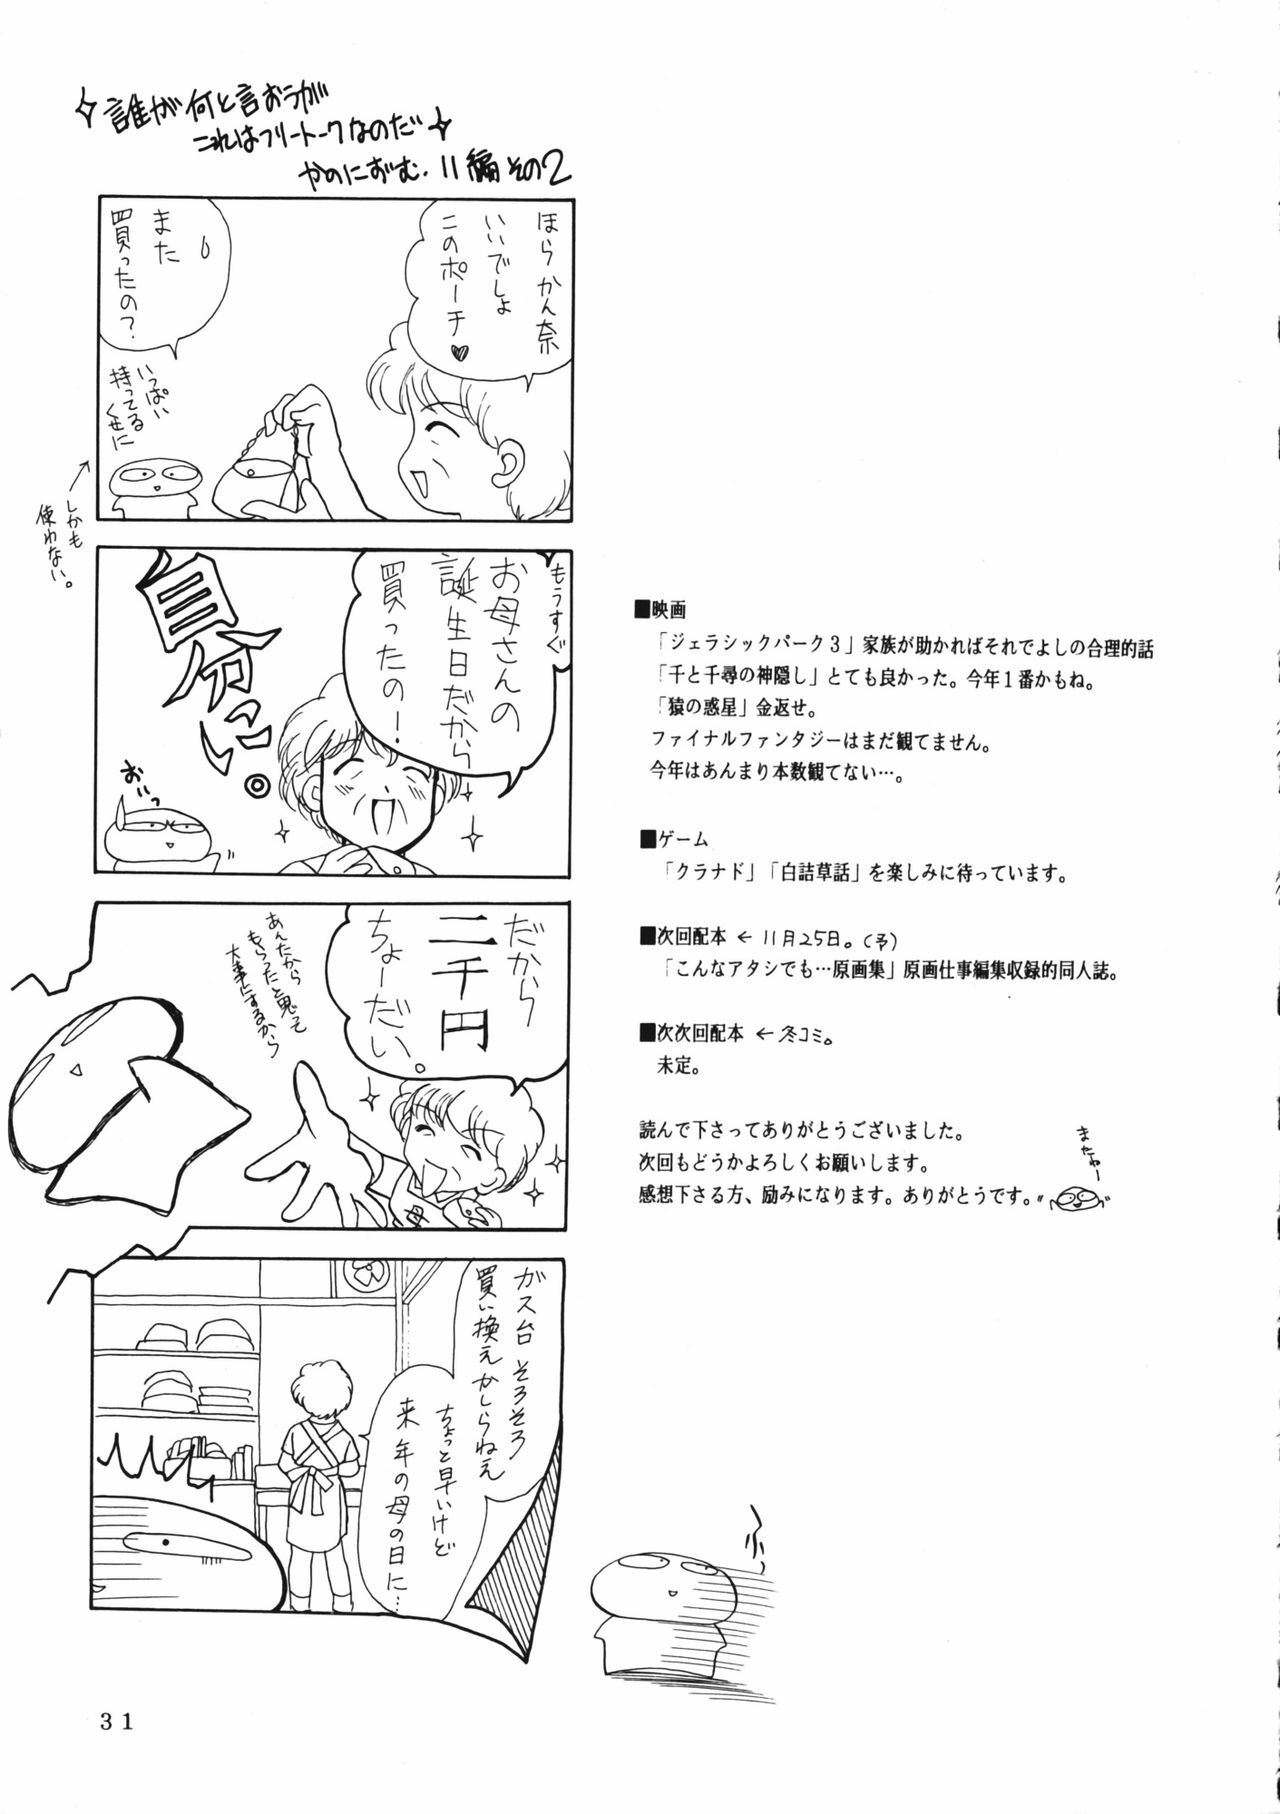 誰が何と言おうが
これはフリートークなのだ
かのにずむ.11編その2
ほらかん奈
いいでしょ
このポーチ♥
また
買ったの?
いっぱい
持ってる
くせに
しかも
使わない。
もうすぐ
お母さんの
誕生日だから
買ったの!
自分にい。
おいっ
だから
二千円
ちょーだい。
あんたから
もらったと思って
大事にするから
母
ガス台そろそろ
買い換えかしらねえ
ちょっと早いけど
来年の母の日に…
ふっ
■映画
「ジェラシックパーク3」家族が助かればそれでよしの合理的話
「千と千尋の神隠し」とても良かった。今年1番かもね。
「猿の惑星」金返せ。
ファイナルファンタジーはまだ観てません。
今年はあんまり本数観てない…。
■ゲーム
「クラナド」「白詰草話」を楽しみに待っています。
■次回配本 ← 11月25日。(予)
「こんなアタシでも…原画集」原画仕事編集収録的同人誌。
■次次回配本 ← 冬コミ。
未定。
読んで下さってありがとうございました。
次回もどうかよろしくお願いします。
感想下さる方、励みになります。ありがとうです。
またねー
31